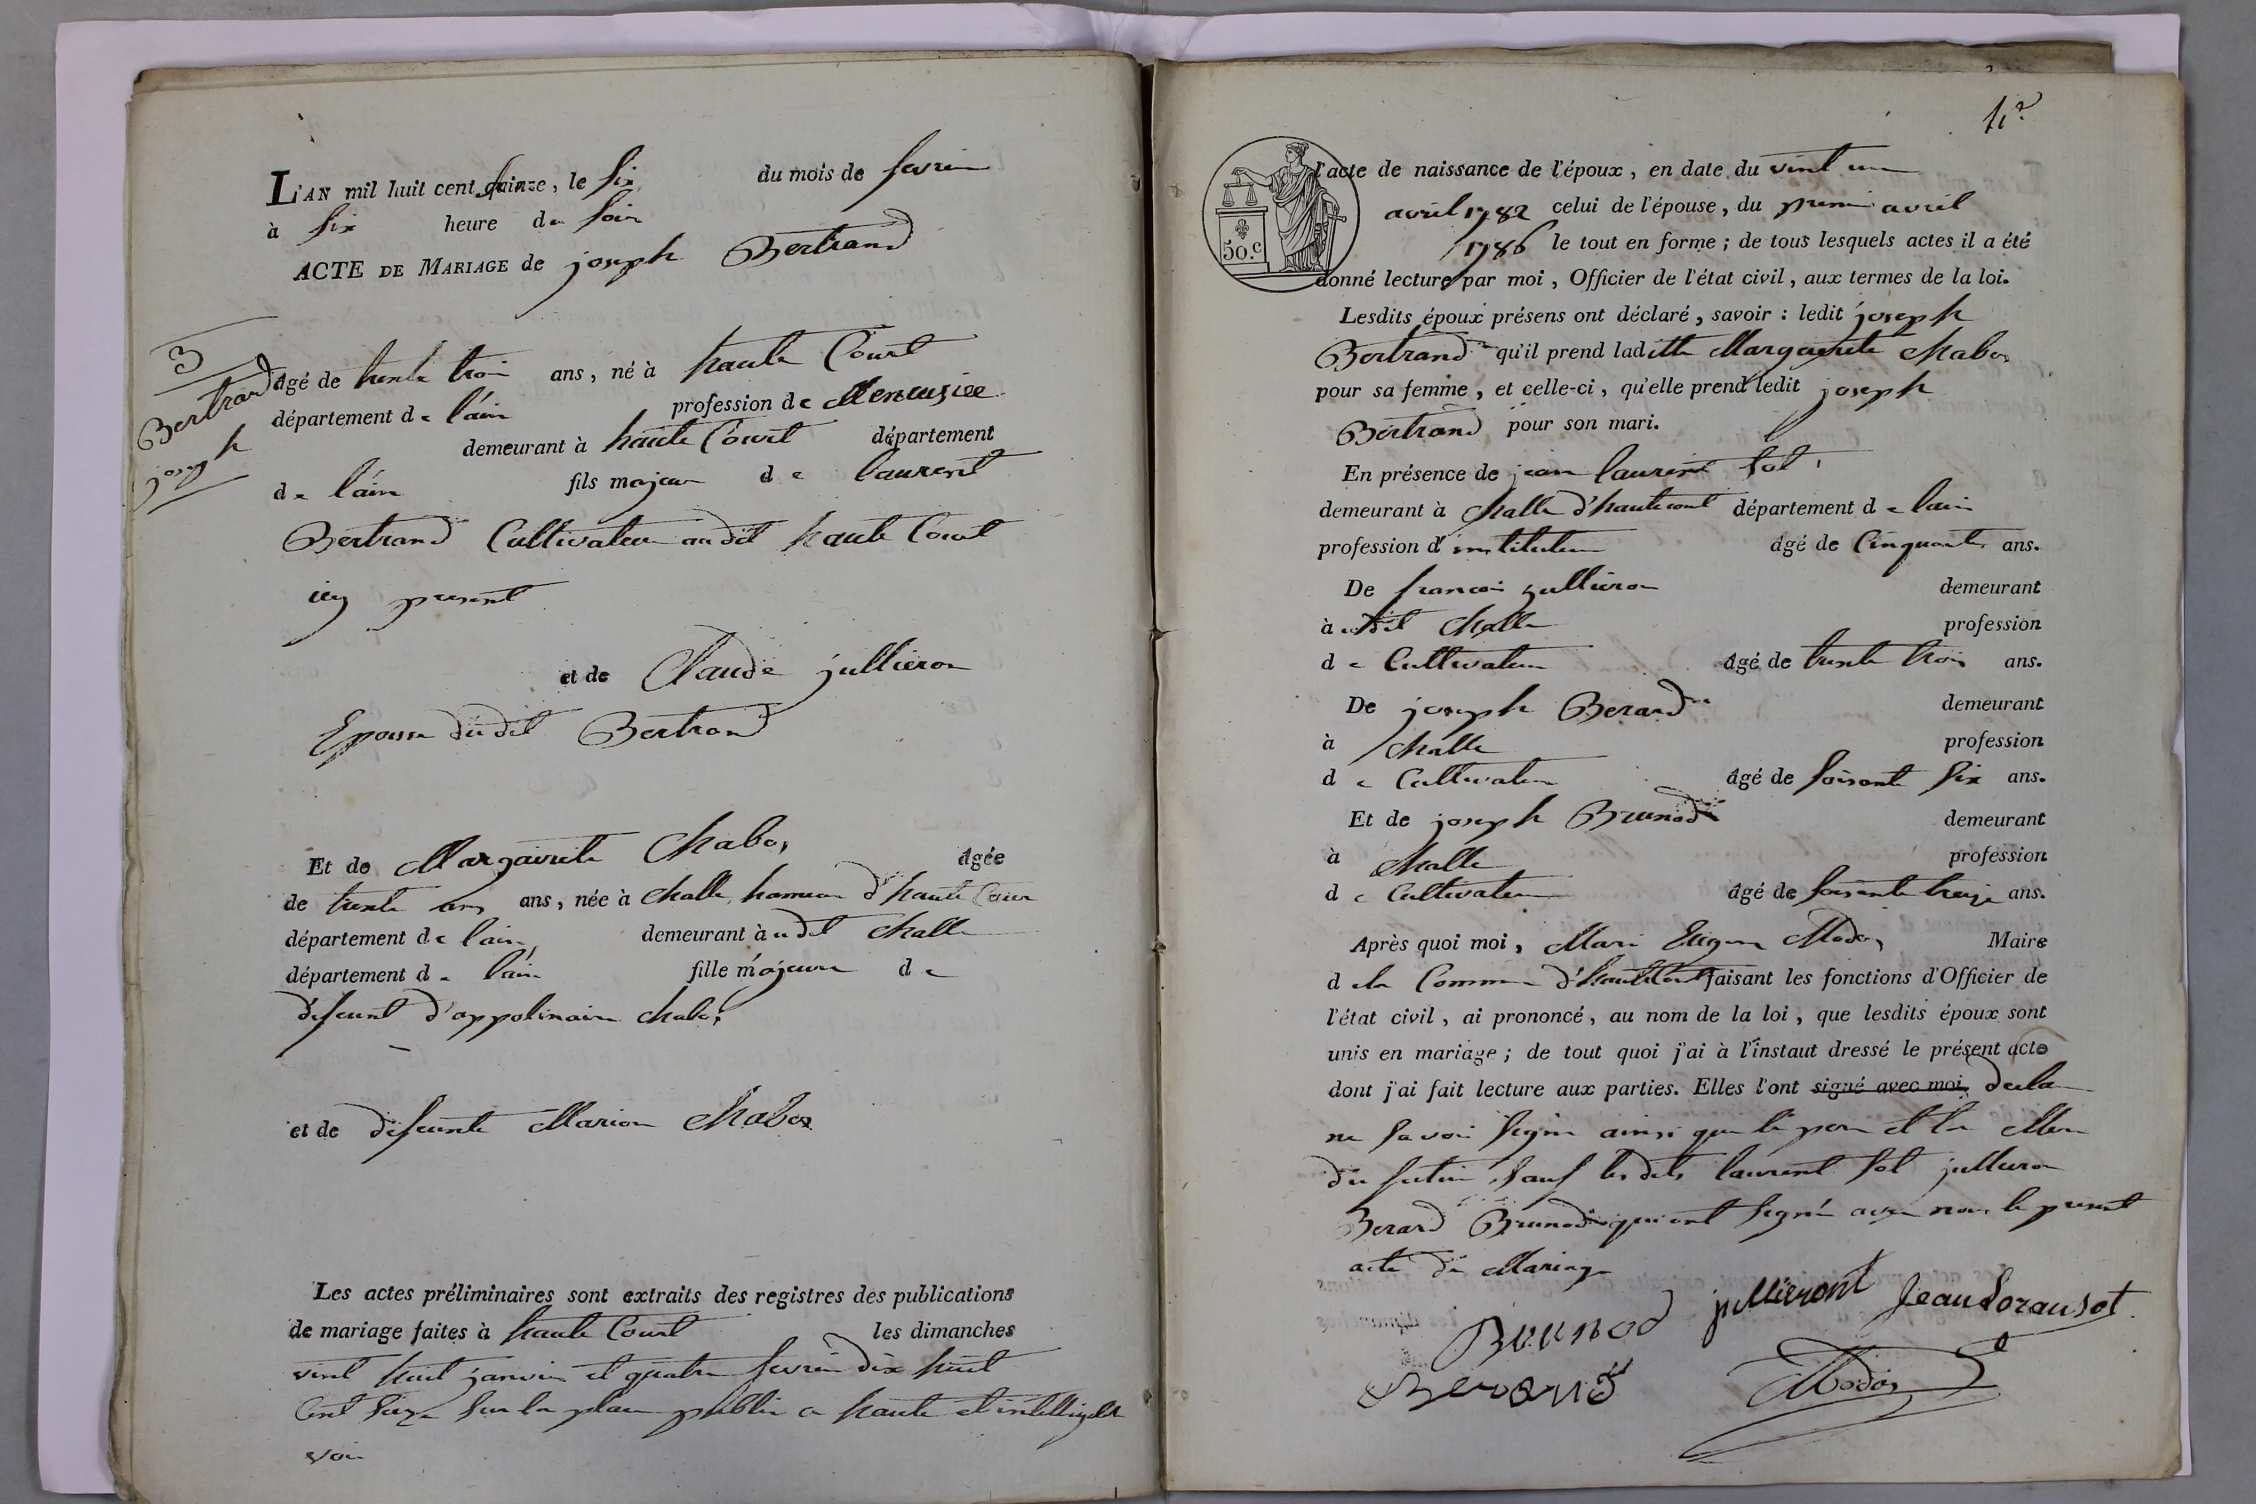 L'AN mil huit cent seize, le six du mois de fevrier
à six heure du soir
ACTE DE MARIAGE de joseph Bertrand
3
Bertrand
joseph
âgé de trente trois ans, né à haute Court
département de l'ain profession de Menuisier
demeurant à haute Court département
de l'ain fils majeur de laurent
Bertrand Cultivateur audit haute Court
icy present
et de Claude jullieron
Epouse dudit Bertrand
Et de Margavrite Chabos âgée
de trente ans ans, née à Challe hameau d'haute Cour
département de l'ain, demeurant à udit Challe
département de l'ain fille majeure de
defeunt d'appolinaire Chabos
et de defeunte Marion Chabos
Les actes préliminaires sont extraits des registres des publications
de mariage faites à haute Court les dimanches
vint huit janvier et quatre fevrier dix huit
Cent seize sur la place publique a haute et intelligible
voix
50.c
l'acte de naissance de l'époux, en date du vint un
avril 1782 celui de l'épouse, du premier avril
1786 le tout en forme; de tous lesquels actes il a été
donné lecture par moi, Officier de l'état civil, aux termes de la loi.
Lesdits époux présens ont déclaré, savoir : ledit joseph
Bertrand qu'il prend laditte Margavrite Chabos
pour sa femme, et celle-ci, qu'elle prend ledit joseph
Bertrand pour son mari.
En présence de jean laurent sot
demeurant à Challe d'hautecourt département de lain
profession d'instituteur âgé de Cinquante ans.
De francois jullieron demeurant
à udit Challe profession
de Cultivateur âgé de trente trois ans.
De joseph Berard demeurant
à Challe profession
de Cultivateur âgé de soisante six ans.
Et de joseph Brunod demeurant
à Challe profession
de Cultivateur âgé de soisante treize ans.
Après quoi moi, Mari Eugene Modas Maire
de la Commune d'hautecourt faisant les fonctions d'Officier de
l'état civil, ai prononcé, au nom de la loi, que lesdits époux sont
unis en mariage; de tout quoi j'ai à l'instaut dressé le présent acte
dont j'ai fait lecture aux parties. Elles l'ont signé avec moi
ne savoir signer ainsi que le pere et la Mere
du futur, sauf lesdits laurent sot jullieron
Berard Brunod qui ont signé avec nous le present
acte de Mariage
Brunod jullieront Jean Loran sot
Berard Modas